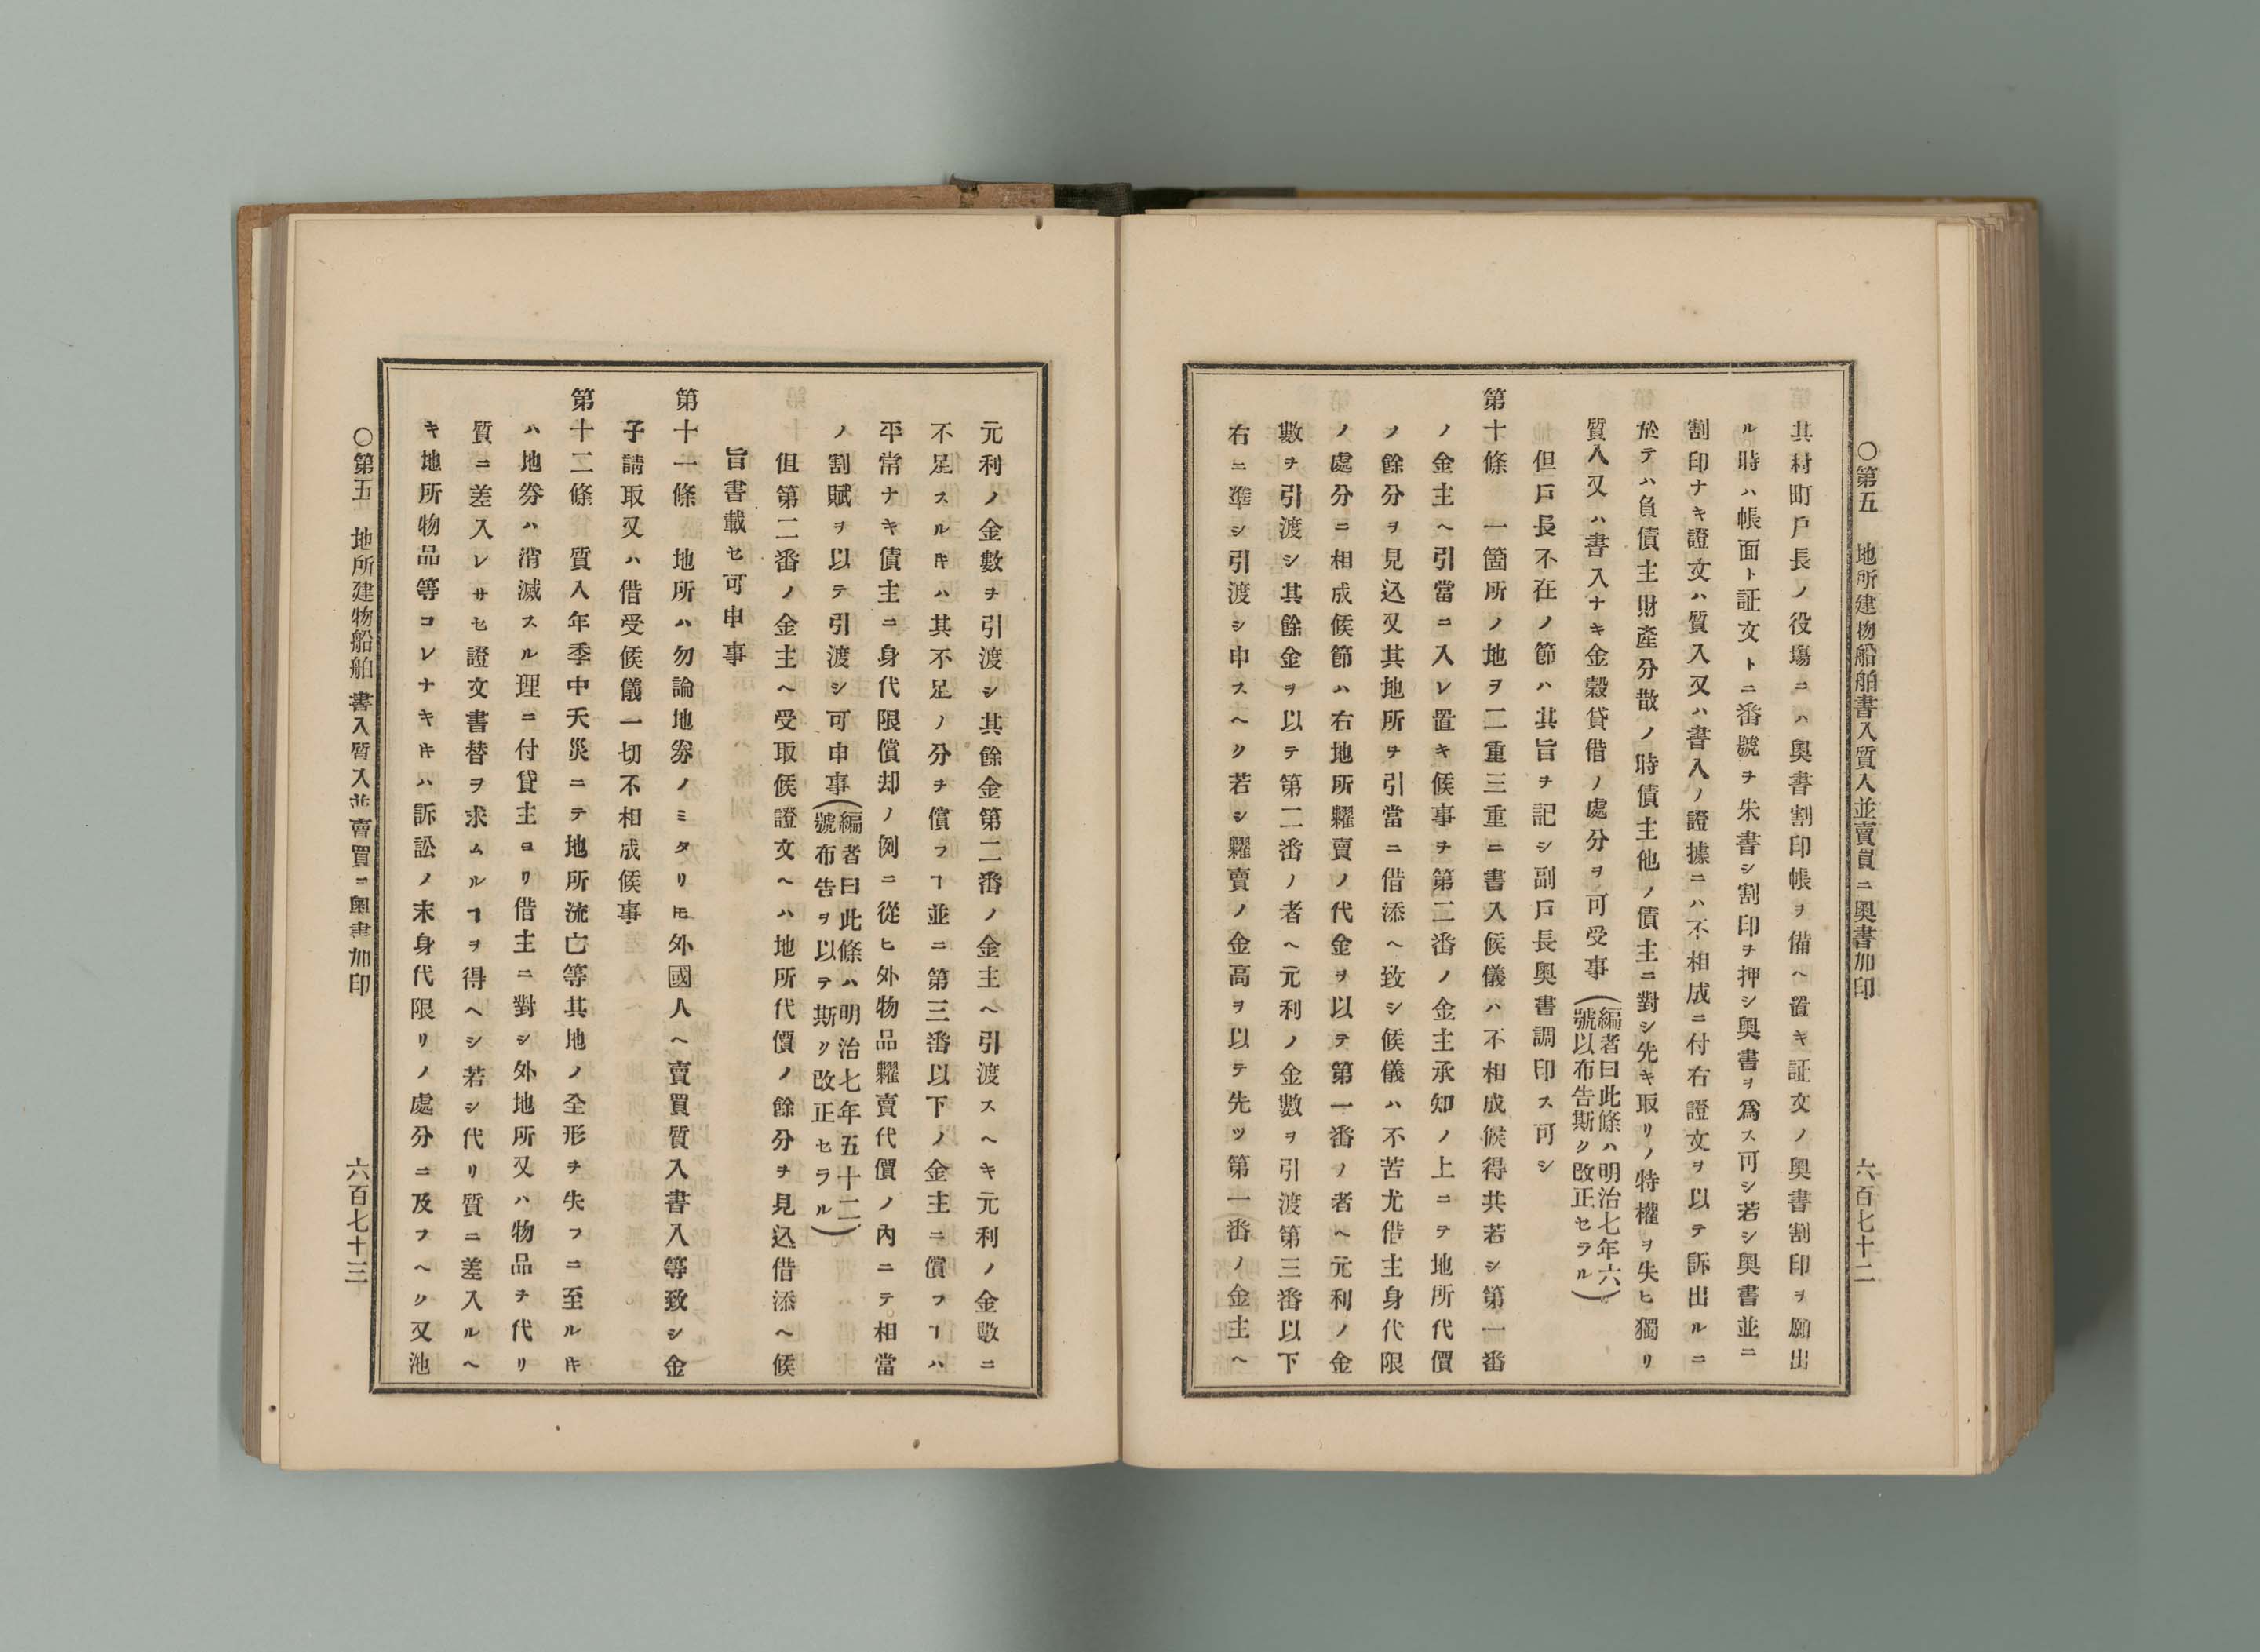 ○第五　地所建物船舶書入質入並賣買ニ奥書加印　六百七十二
其村町戸長ノ役塲ニハ奥書割印帳ヲ備ヘ置キ証文ノ奥書割印ヲ願出
ル時ハ帳面ト証文トニ番號ヲ朱書シ割印ヲ押シ奥書ヲ爲ス可シ若シ奥書並ニ
割印ナキ證文ハ質入又ハ書入ノ證據ニハ不相成ニ付右證文ヲ以テ訴出ルニ
於テハ負債主財產分散ノ時債主他ノ債主ニ對シ先キ取リノ特權ヲ失ヒ獨リ
質入又ハ書入ナキ金穀貸借ノ處分ヲ可受事（編者曰此條ハ明治七年六
號以布告斯ク改正セラル）
但戸長不在ノ節ハ其旨ヲ記シ副戸長奥書調印ス可シ
第十條　一箇所ノ地ヲ二重三重ニ書入候儀ハ不相成候得共若シ第一番
ノ金主ヘ引當ニ入レ置キ候事ヲ第二番ノ金主承知ノ上ニテ地所代價
ノ餘分ヲ見込又其地所ヲ引當ニ借添ヘ致シ候儀ハ不苦尤借主身代限
ノ處分ニ相成候節ハ右地所糶賣ノ代金ヲ以テ第一番ノ者ヘ元利ノ金
數ヲ引渡シ其餘金ヲ以テ第二番ノ者ヘ元利ノ金數ヲ引渡第三番以下
右ニ準シ引渡シ申スヘク若シ糶賣ノ金高ヲ以テ先ツ第一番ノ金主ヘ
元利ノ金數ヲ引渡シ其餘金第二番ノ金主ヘ引渡スヘキ元利ノ金數ニ
不足スルキハ其不足ノ分ヲ償フヿ並ニ第三番以下ノ金主ニ償フヿハ
平常ナキ債主ニ身代限償却ノ例ニ從ヒ外物品糶賣代價ノ內ニテ相當
ノ割賦ヲ以テ引渡シ可申事（編者曰此條ハ明治七年五十二
號布告ヲ以テ斯ク改正セラル）
但第二番ノ金主ヘ受取候證文ヘハ地所代價ノ餘分ヲ見込借添ヘ候
旨書載セ可申事
第十一條　地所ハ勿論地券ノミタリ𪜈外國人ヘ賣買質入書入等致シ金
子請取又ハ借受候儀一切不相成候事
第十二條　質入年季中天災ニテ地所流亡等其地ノ全形ヲ失フニ至ルキ
ハ地券ハ消滅スル理ニ付貸主ヨリ借主ニ對シ外地所又ハ物品ヲ代リ
質ニ差入レサセ證文書替ヲ求ムルヿヲ得ヘシ若シ代リ質ニ差入ルヘ
キ地所物品等コレナキキハ訴訟ノ末身代限リノ處分ニ及フヘク又池
○第五　地所建物船舶書入質入並賣買ニ奥書加印　六百七十三